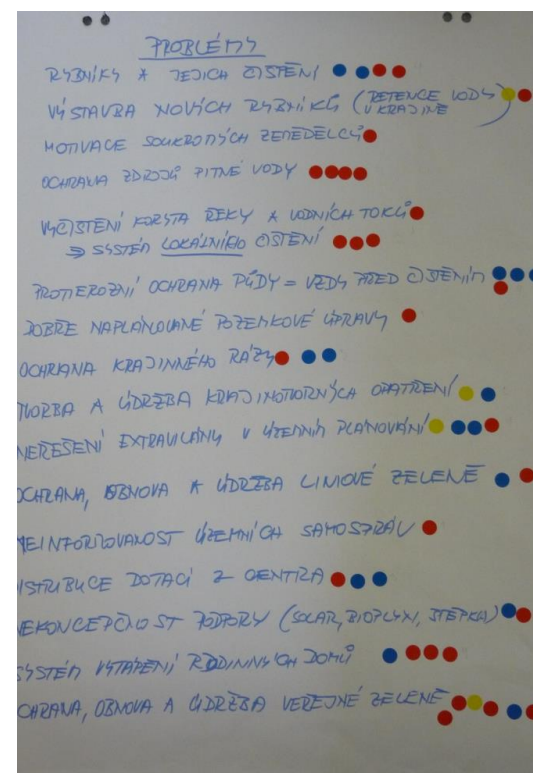 PROBLÉMY
RYBNÍKY A JEJICH ČIŠTĚNÍ
VÝSTAVBA NOVÝCH RYBNÍKŮ (RETENCE VODY
V KRAJINĚ
MOTIVACE SOUKROMÝCH ZEMĚDĚLCŮ
OCHRANA ZDROJŮ PITNÉ VODY
VYČIŠTĚNÍ KORYTA ŘEKY A VODNÍCH TOKŮ
⇒ SYSTÉM LOKÁLNÍHO ČIŠTĚNÍ
PROTIEROZNÍ OCHRANA PŮDY = VŽDY PŘED ČIŠTĚNÍM
DOBŘE NAPLÁNOVANÉ POZEMKOVÉ ÚPRAVY
OCHRANA KRAJINNÉHO RÁZU
TVORBA A ÚDRŽBA KRAJINOTVORNÝCH OPATŘENÍ
NEŘEŠENÍ EXTRAVILÁNU V ÚZEMNÍM PLÁNOVÁNÍ
OCHRANA, OBNOVA A ÚDRŽBA LINIOVÉ ZELENĚ
NEINFORMOVANOST ÚZEMNÍCH SAMOSPRÁV
ISTRIBUCE DOTACÍ Z CENTRA
NEKONCEPČNOST PODPORY (SOLAR, BIOPLYN, ŠTĚPKA)
SYSTÉM VYTÁPĚNÍ RODINNÝCH DOMŮ
CHRANA, OBNOVA A ÚDRŽBA VEŘEJNÉ ZELENĚ